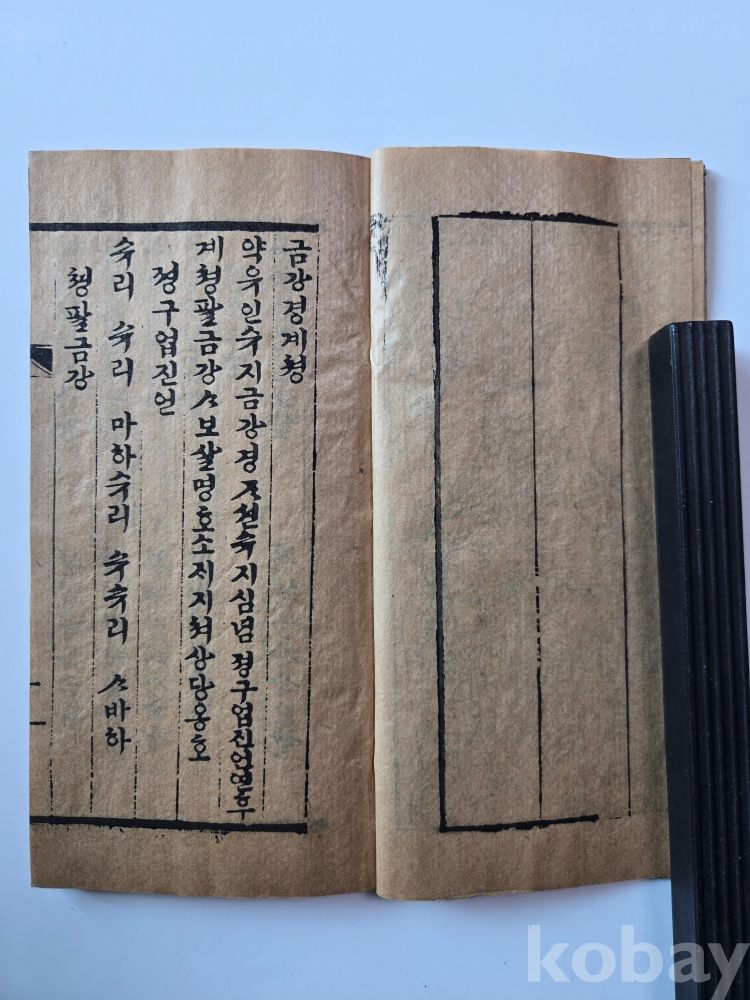 금강경계쳥
약유인수지금강경ᄌᆞ션수지심념 졍구업진언연후
계쳥팔금강ᄉᆞ보살명호소ᄌᆡ지쳐샹당옹호
졍구업진언
슈리 슈리 마하슈리 슈슈리 ᄉᆞ바하
쳥팔금강
kobay